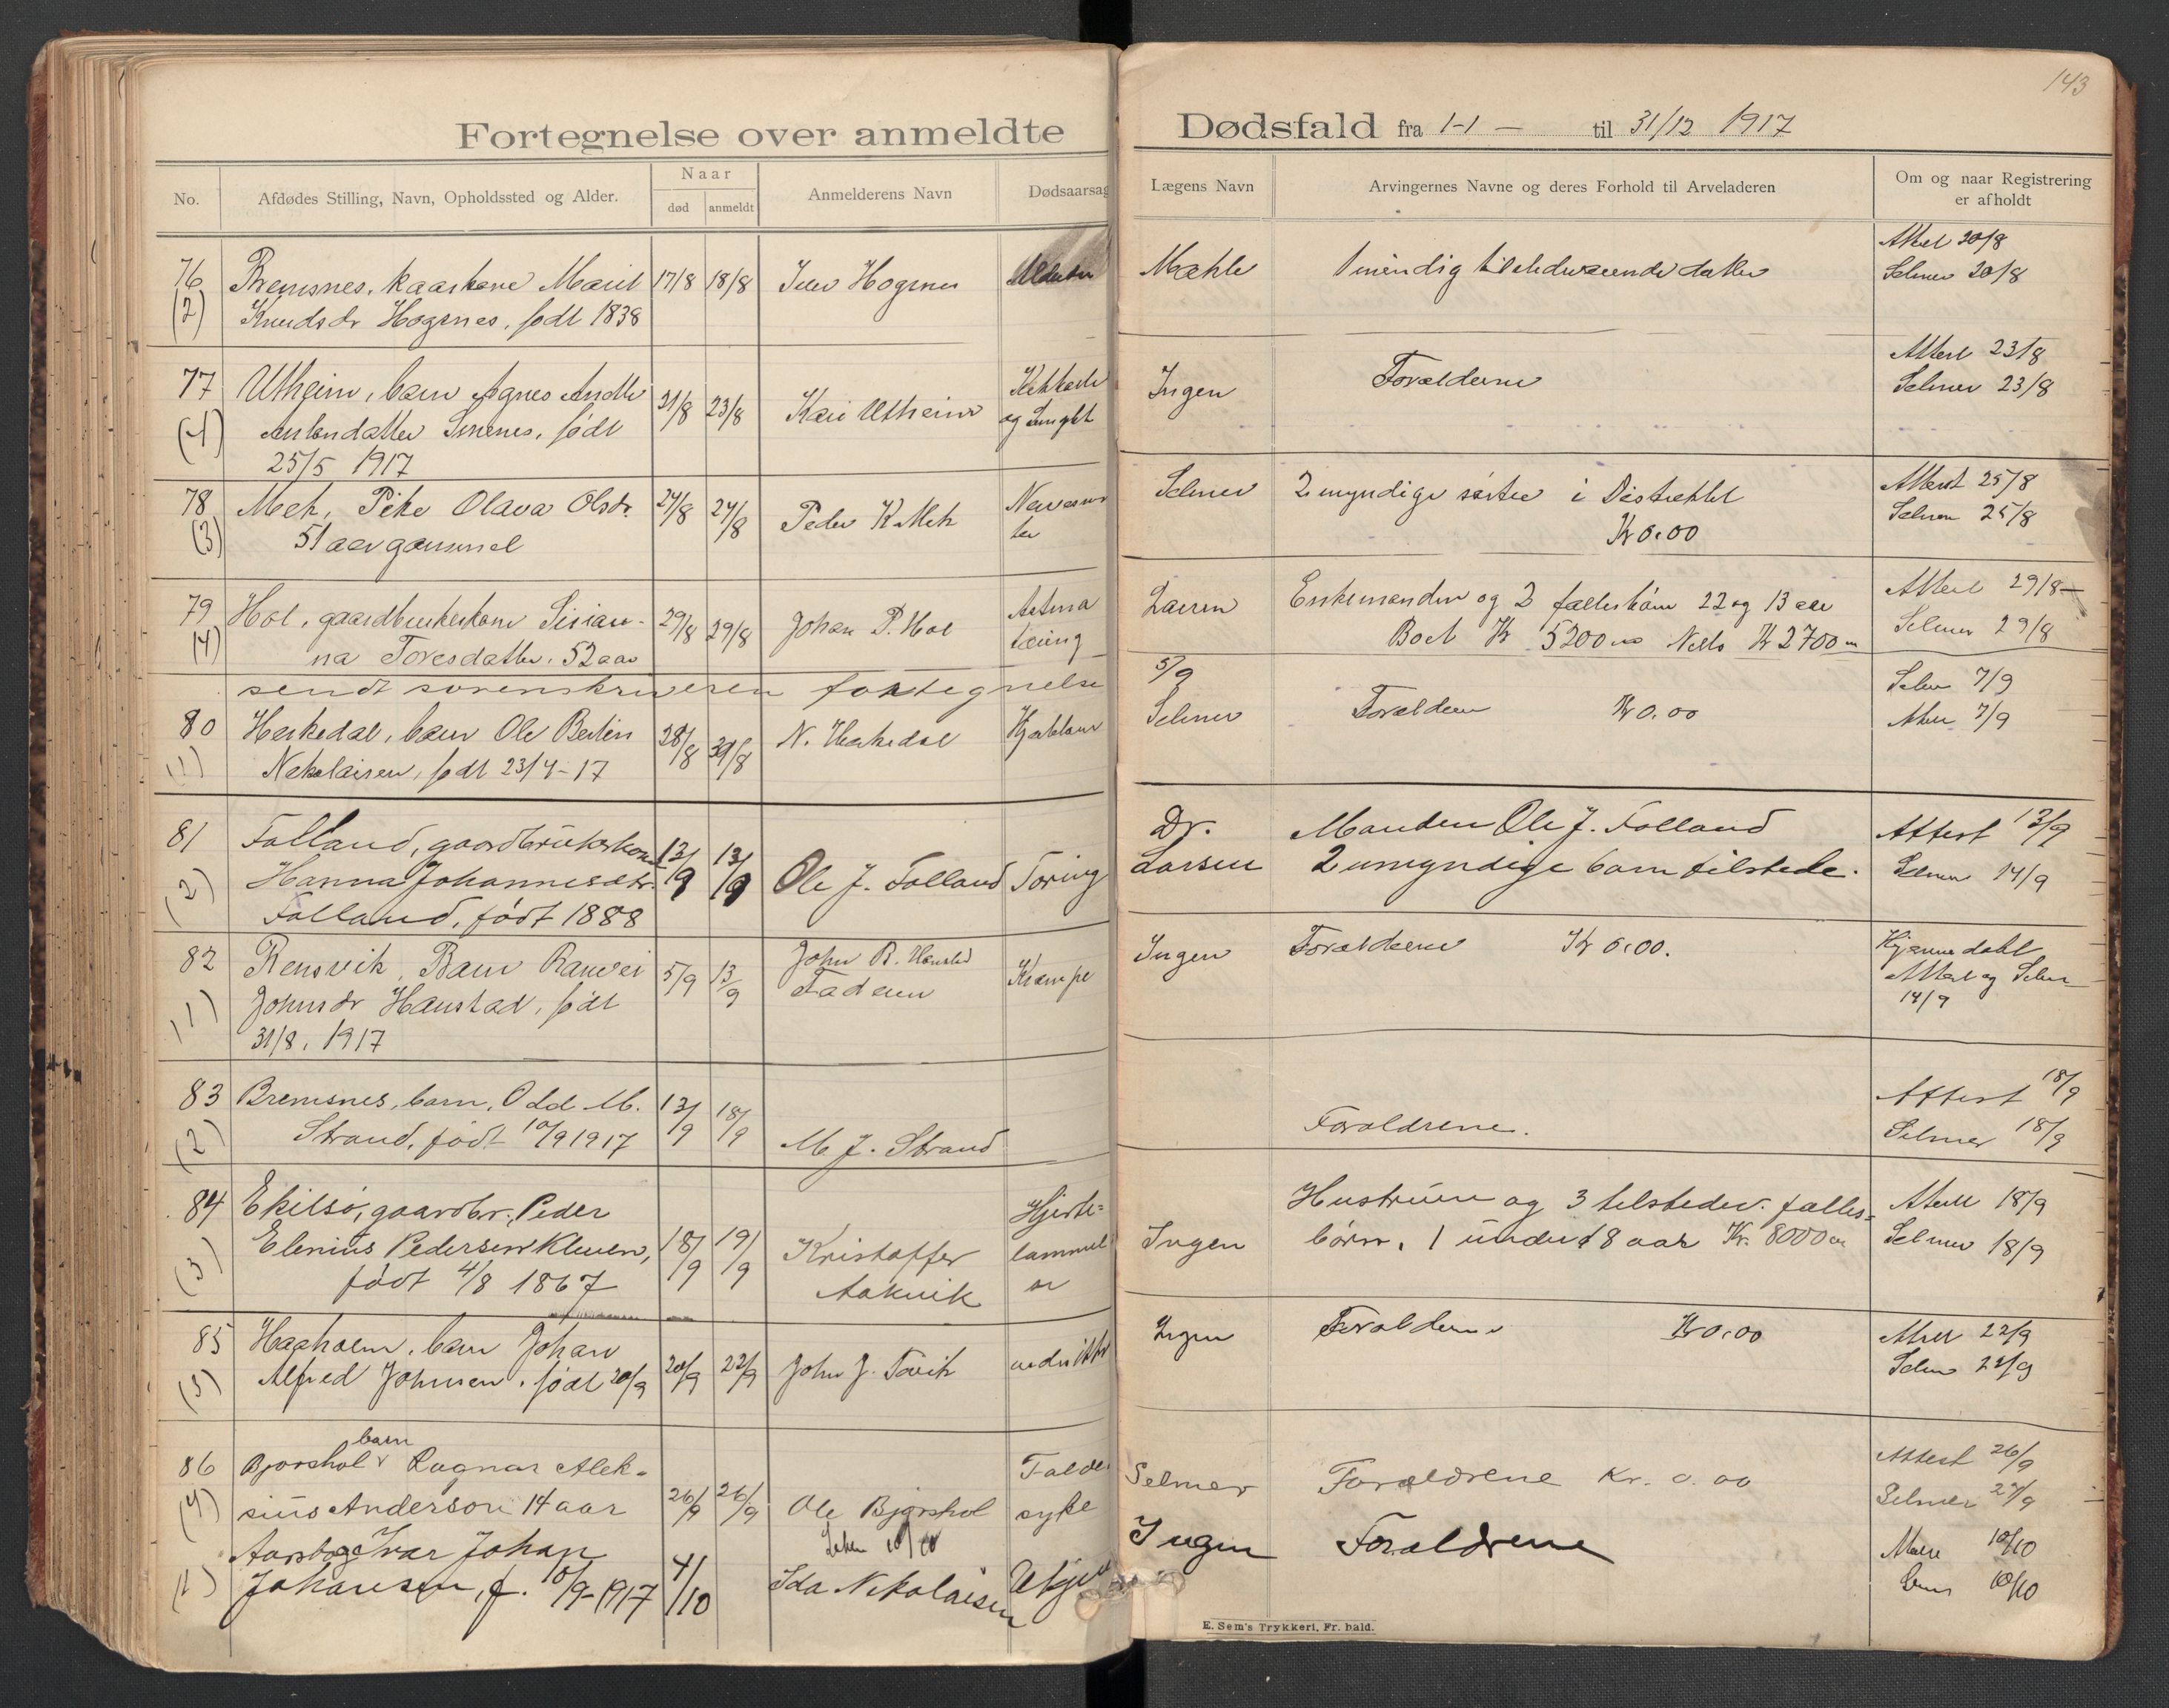 143
Fortegnelse over anmeldte Dødsfald fra 1-1 — til 31/12 1917
No.
Afdødes Stilling, Navn, Opholdssted og Alder.
Naar
død
anmeldt
Anmelderens Navn
Dødsaarsag
Lægens Navn
Arvingernes Navne og deres Forhold til Arveladeren
Om og naar Registrering
er afholdt
76 Bremsnes, kaarkone Marit 17/8 18/8
(2) Knudsdr Hogsnes, født 1838
1 myndig tilstedeværende datter
20/8
Selmer 20/8
77 Utheim, barn Agnes
født
25/5 1917
21/8 23/8 Kari Utheim
Kikhoste
og
Ingen
Forældrene
Attest 23/8
Selmer 23/8
78 Mek, Pike Olava Olsdr. 24/8 24/8 Peder K. Mek
(3) 51 aar gammel
Selmer
2 myndige søstre i Distriktet
Kr 0.00
Attest 25/8
Selmer 25/8
79 Hol, gaardbrukerkone
(4) na Toresdatter. 52 aar
29/8 29/8 Johan P. Hol
Astma
tæring
Larsen
Enkemanden og 2 fællesbørn 22 og 13 aar
Boet Kr 5200 Netto Kr 2700
Attest 29/8
Selmer 29/8
sendt sorenskriveren fortegnelse 5/9
80 Heskedal, barn Ole
(1) Nikolaisen, født 23/4-17
28/8 30/8 N. Heskedal
Selmer
Forældrene Kr 0.00
Selmer 7/9
Attest 7/9
81 Folland, gaardbrukerkone
(2) Hanna Johannesdtr.
Folland, født 1888
13/9 13/9 Ole J. Folland Tæring
Dr.
Larsen
Manden Ole J. Folland
2 umyndige barn tilstede.
Attest 13/9
Selmer 14/9
82 Rensvik, Barn
(1) Johnsdr Hanstad, født
31/8. 1917
5/9 13/9
John R. Hanstad
Faderen
Krampe
Ingen
Forældrene Kr 0.00.
Attest og Selmer
14/9
83 Bremsnes, barn, Odd M.
(2) Strand, født 10/9 1917
13/9 18/9 M J. Strand
Forældrene.
Attest 18/9
Selmer 18/9
84 Ekilsø, gaardbr. Peder
(3) Elenius Pedersen Kleven,
født 4/8 1867
18/9 19/9 Kristoffer
Aakvik
Hjerte-
lammel
se
Ingen
Hustruen og 3 tilstedev. fælles-
børn, 1 under 18 aar Kr. 8000
Attest 18/9
Selmer 18/9
85 Hagholm, barn Johan
(5) Alfred Johnsen. født 20/9
20/9 22/9 John J.
Ingen
Forældrene Kr 0.00
Attest 22/9
Selmer 22/9
86 Bjørshol barn Ragnar Alek-
(4) sius Anderson 14 aar
26/9 26/9 Ole Bjørshol
Falde
syke
Selmer
Forældrene Kr. 0.00
Attest 26/9
Selmer 27/9
Ivar Johan
Johansen, f. 10/9-1917
4/10 Ida Nikolaisen
Ingen
Forældrene
10/10
10/10
E. Sem's Trykkeri, Fr. hald.